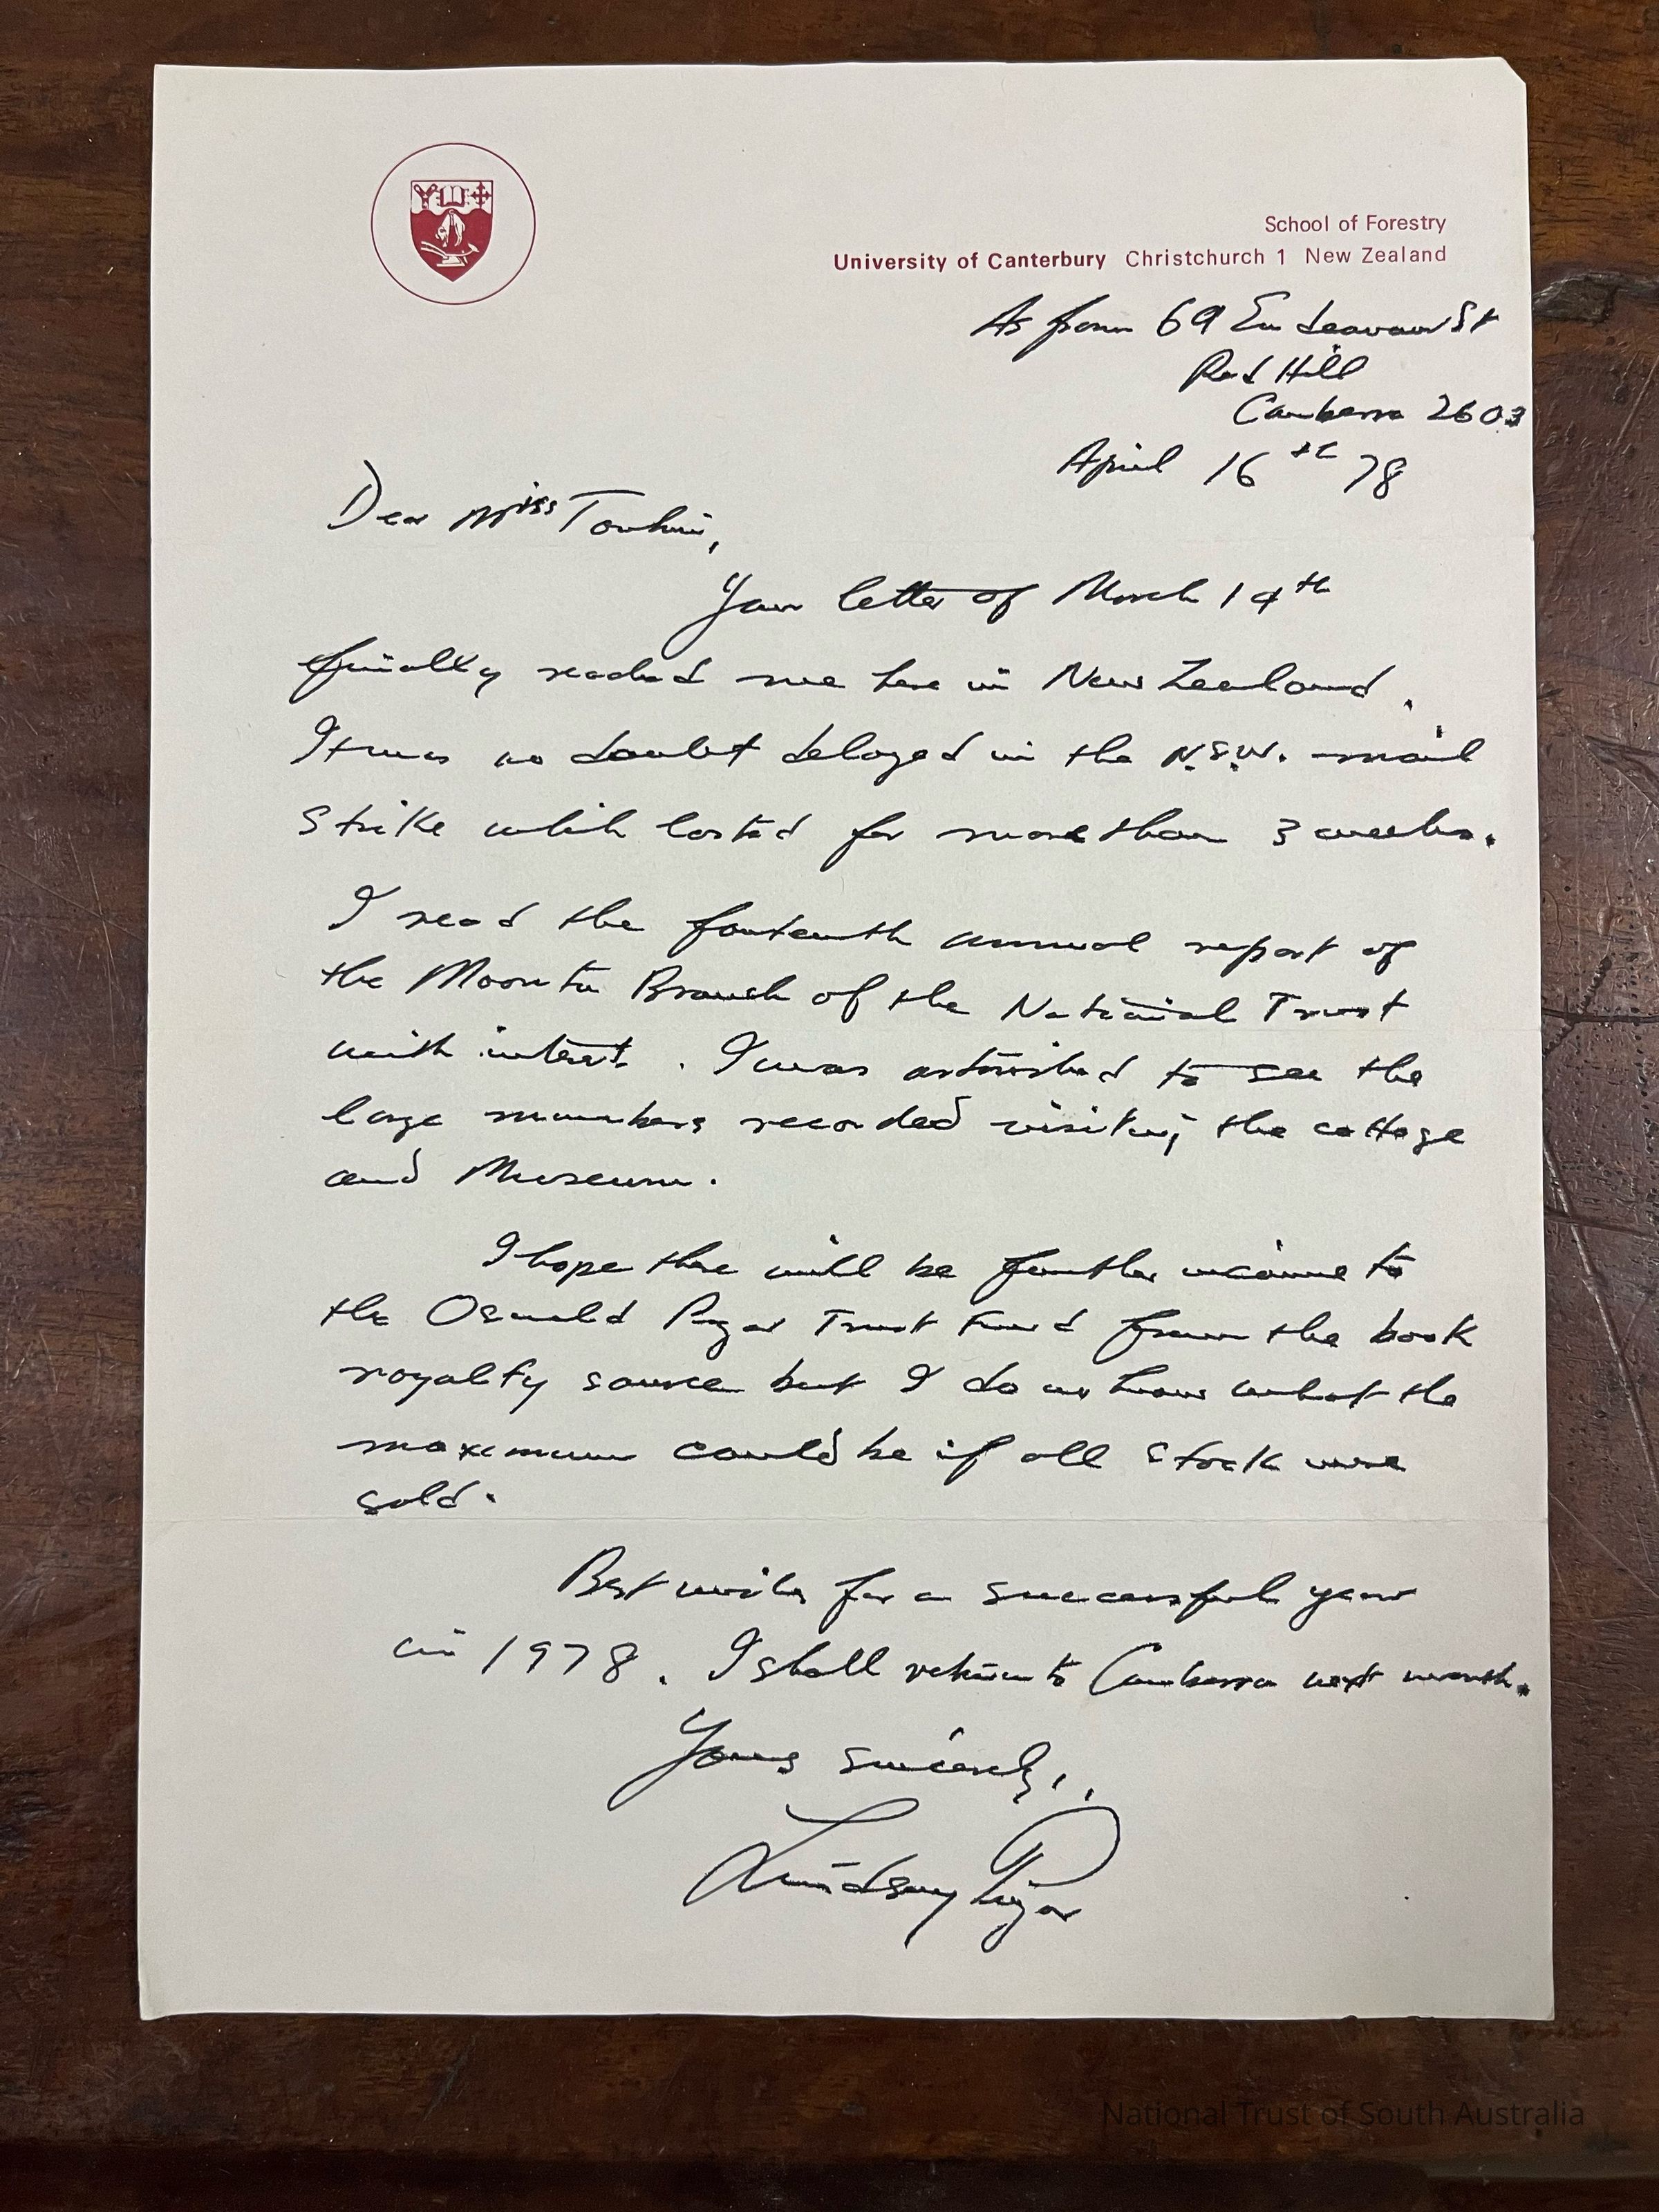 School of Forestry
University of Canterbury Christchurch 1 New Zealand
As from 69 Endeavour St
Red Hill
Canberra 2603
April 16th 78
Dear Miss
Your letter of March 14th
finally reached me here in New Zealand.
It was no doubt delayed in the N.S.W. mail
strike which lasted for more than 3 weeks.
I read the fourteenth annual report of
the Moonta Branch of the National Trust
with interest. I was astonished to see the
large numbers recorded visiting the cottage
and Museum.
I hope there will be further income to
the Oswald Pryor Trust Fund from the book
royalty source but I do not know what the
maximum could be if all stock were
sold.
Best wishes for a successful year
in 1978. I shall return to Canberra next month.
Yours sincerely,
Lindsay Pryor
National Trust of South Australia